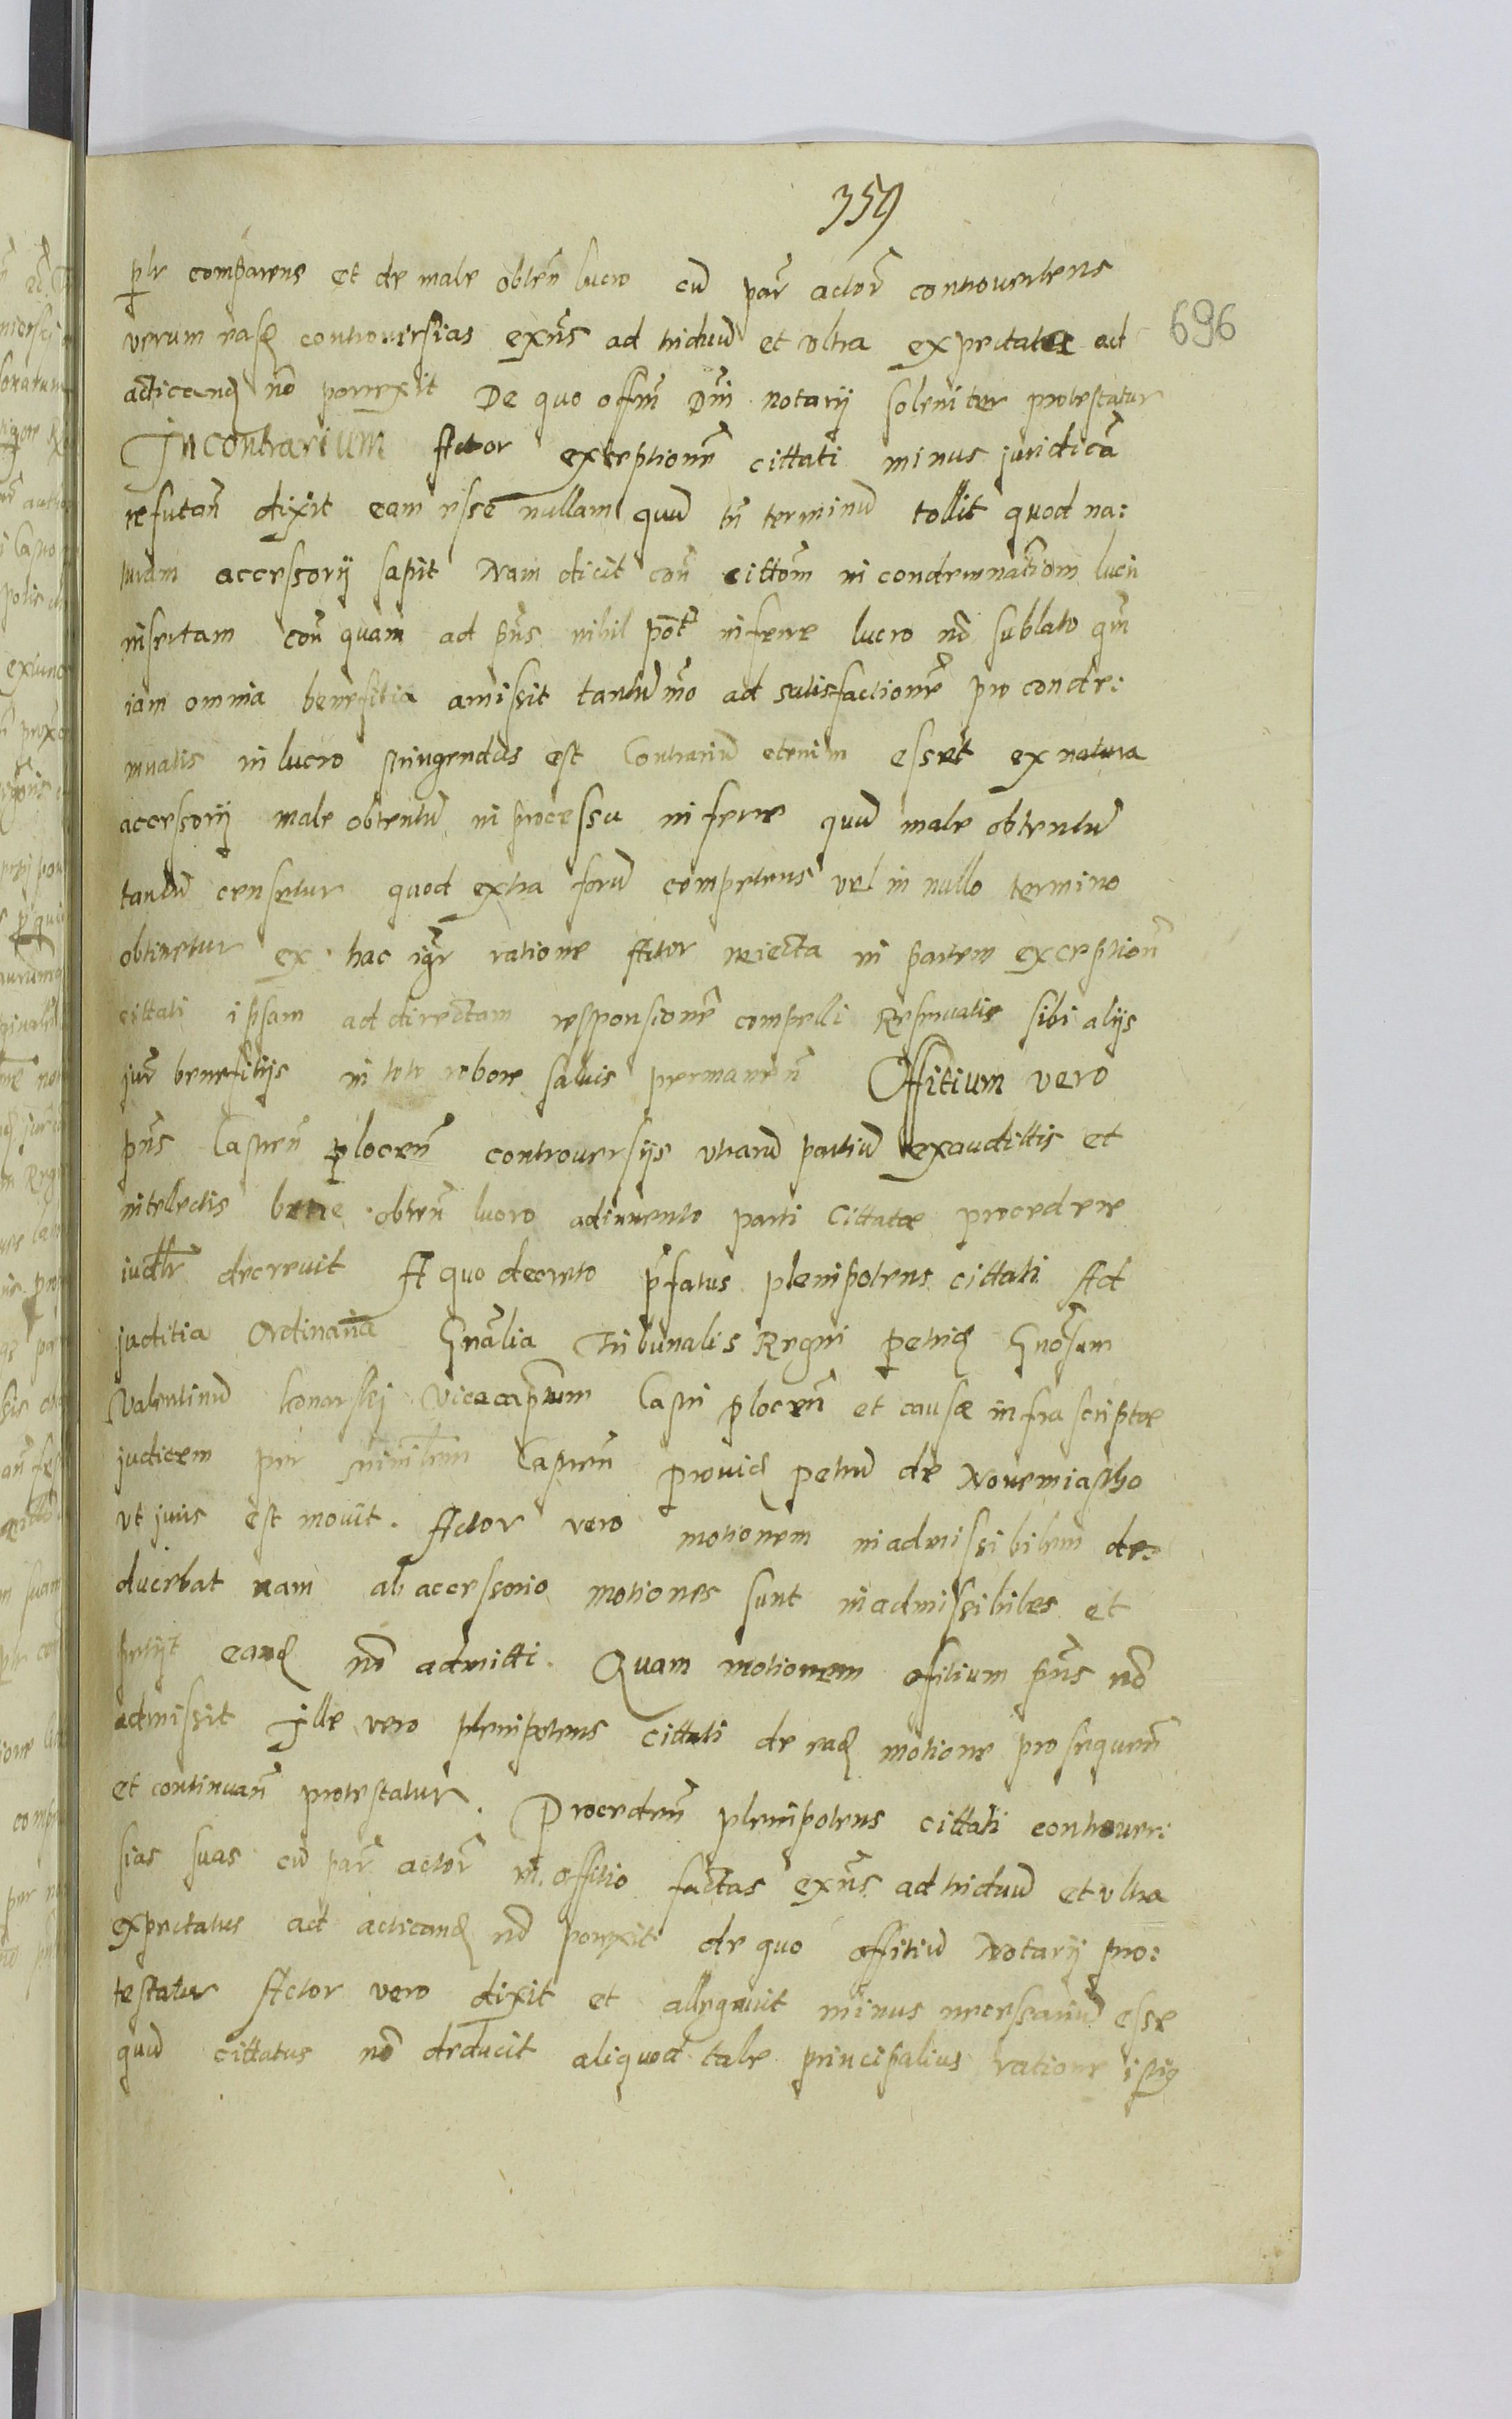 359
696
plr comparens et de male obten̄ lucro cū par̄ actor̄ controvertens
verum easd controversias exn̄s ad triduū et ultra expectatus ad
acticand nō porrexit De quo offm̄ Dnī notarÿ soleniter protestatur
Incontrarium Actor exceptionē cittati minus juridicā
refutan̄ dixit eam esse nullam quū tn̄ terminū tollit quod na:
turam accessorÿ sapit Nam dicit con̄ cittōm in condemnatiōm lucri
insertam con̄ quam ad pn̄s nihil pōt inferre lucro nō sublato qm̄
iam omnia benefitia amissit tantummō ad satisfactionē pro conde:
mnatis in lucro stringendus est Contrariū etenim esset ex natura
accessorÿ male obtentū in processu inferre quū male obtentū
tantū censetur quod extra forū competens vel in nullo termino
obtinetur ex hac igr̄ ratione Actor reiecta in partem exception̄
cittati ipsam ad directam responsionē compelli Reservatis sibi alÿs
jur̄ benefitÿs in toto robore salvis permanen̄ Offitium vero
pn̄s Castren̄ plocen̄ controversÿs utrarū partiū exaudittis et
intellectis bene obten̄ lucro adinvento parti Cittatæ procedere
iudlr̄ decrevit A quo decreto p̄fatus plenipotens cittati Ad
juditia Ordinaria Gnālia Tribunalis Regni petric̄ Gnōsum
Valentinū konarskj Vicecaptum Castri plocen̄ et causæ infrascriptæ
judicem per ministlem Castren̄ provid petrū de Novemiastho
ut juris est movit. Actor vero motionem inadmissibilem de:
ducebat nam ab accessorio motiones sunt inadmissibiles et
petÿt eand nō admitti. Quam motionem ofitium pn̄s nō
admissit Ille vero plenipotens cittati de ead motione prosequen̄
et continuan̄ protestatur. Proceden̄ plenipotens cittati controver:
sias suas cū par̄ actor̄ in offitio factas exn̄s ad triduū et ultra
expectatus ad acticand nō porrexit de quo offitiū Notarÿ pro:
testatur Actor vero dixit et allegavit minus necessariū esse
quū cittatus nō deducit aliquod tale principalius ratione ipsiq